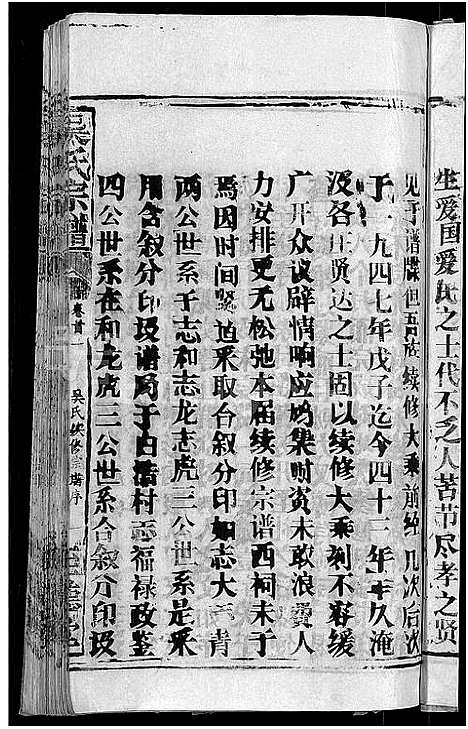 生爱国爱民之士代不乏人苦节尽孝之贤
见于谱牒但吾族续修大乘前经几次后次
于一九四七年戊子迄今四十三年年久淹
没各庄贤达之士固以续修大乘刻不容缓
广开众议辟情响应鸠集财资未敢浪费人
力安排更无松弛本届续修宗谱西祠未于
焉因时间紧迫采取合叙分印如志大 青
两公世系于志和志龙志虎三公世系是采
用含叙分印圾谱局于白 村志福禄政鉴
四公世系在和龙虎三公世系合叙分印圾
吴氏宗谱
卷首一
吴氏续修宗谱序